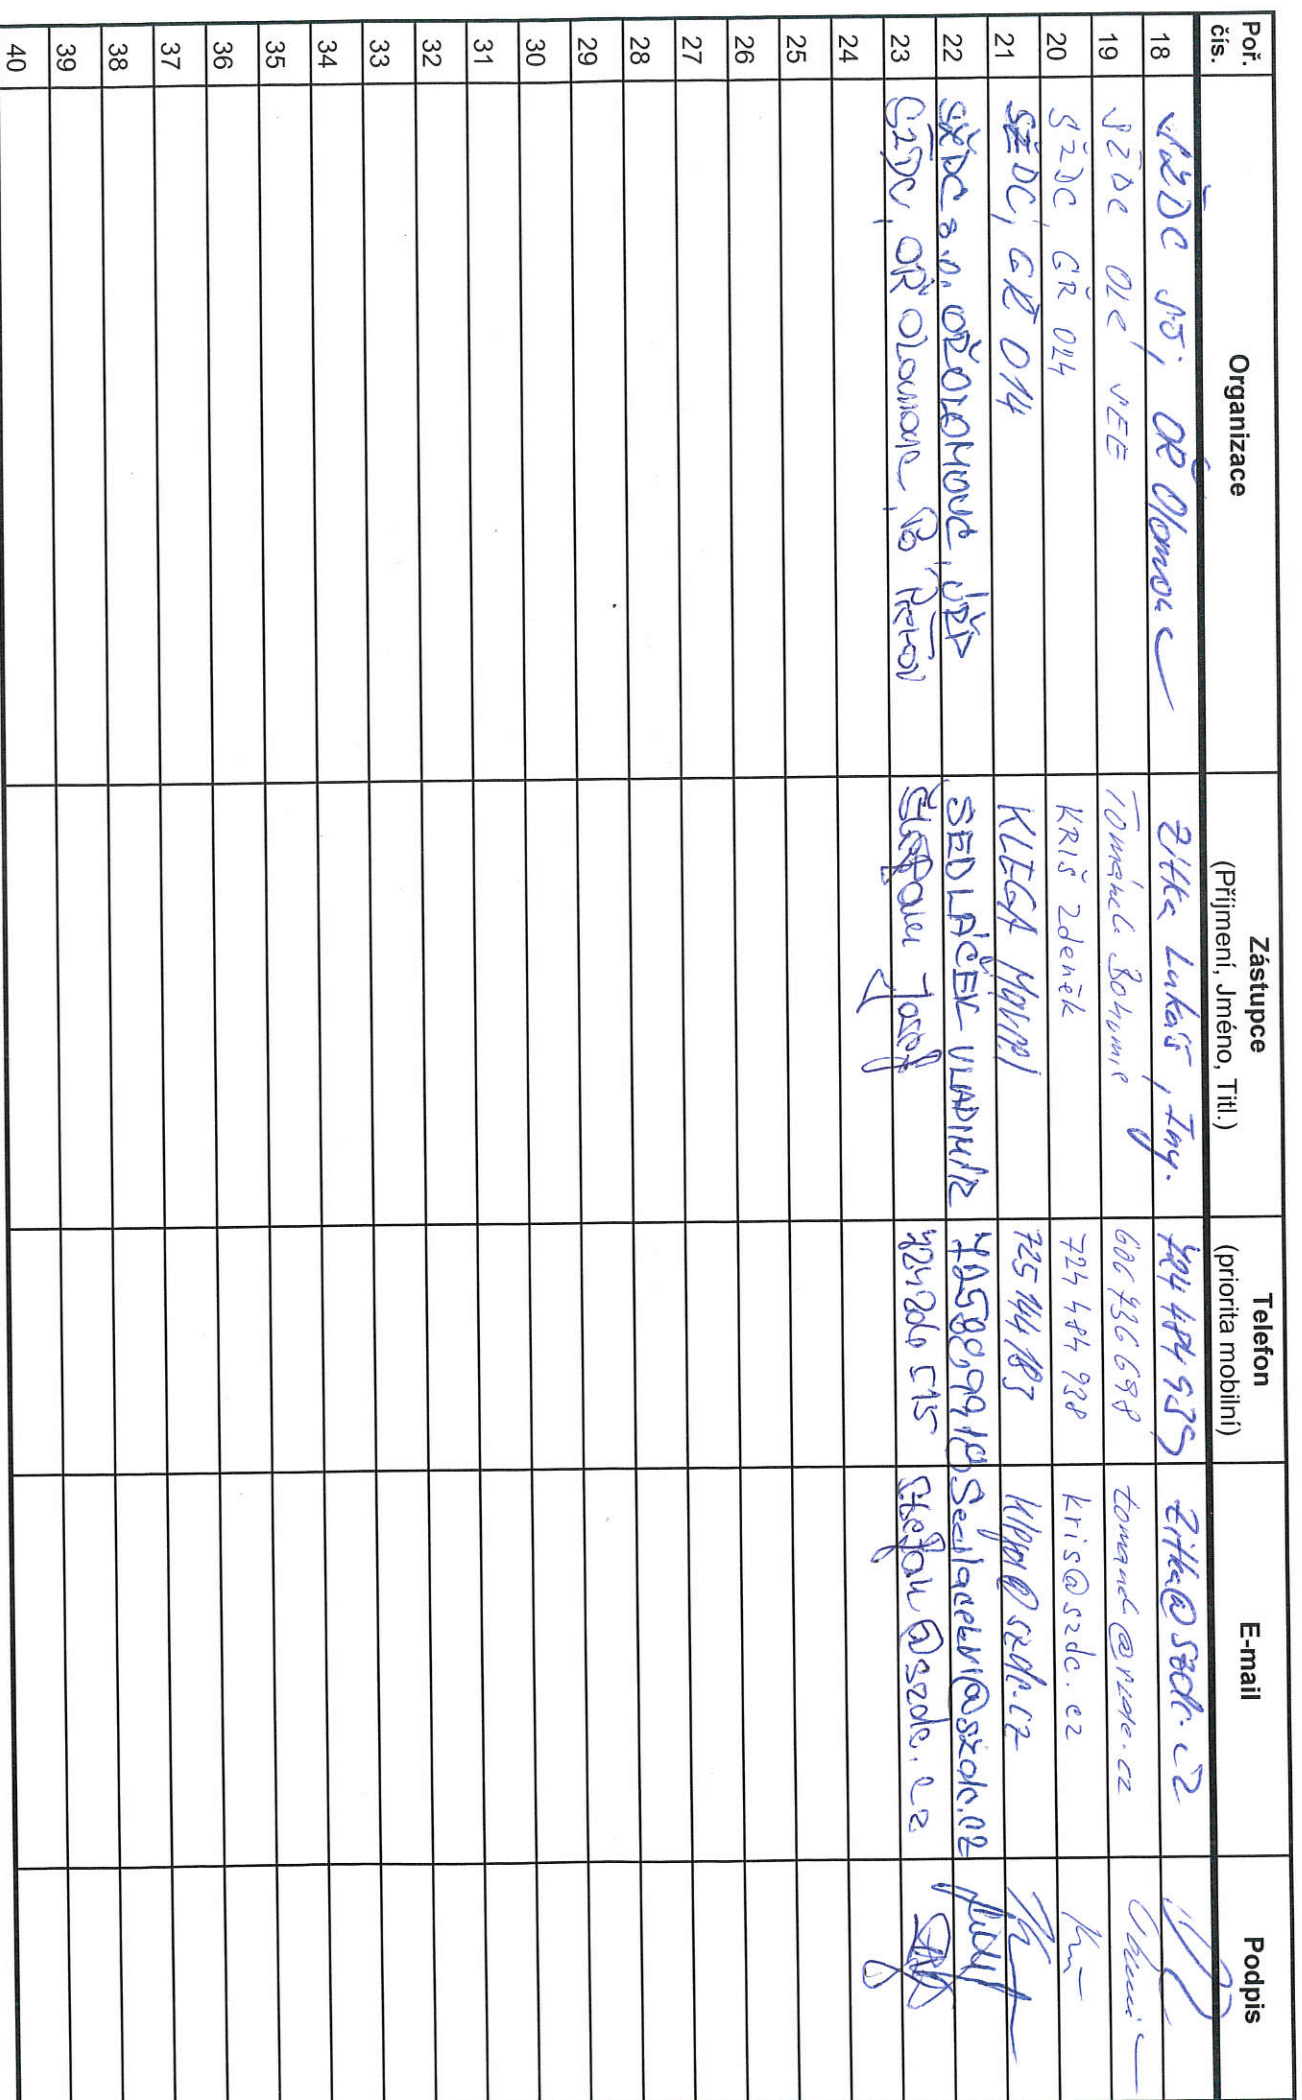 Poř. čís. Organizace Zástupce (Příjmení, Jméno, Titl.) Telefon (priorita mobilní) E-mail Podpis
18 SŽDC OŘ Olomouc Zitka Lukáš, Ing. zitka@szdc.cz
19 SŽDC OLC SEE Bohumil 606736698
20 SŽDC, GŘ O24 KRIŠ Zdeněk 724 484 938 kris@szdc.cz
21 SŽDC, GŘ O14 KLEGA 725 144 183 klega@szdc.cz
22 SŽDC s.o. OŘ OLOMOUC, ÚŘP SEDLÁČEK VLADIMÍR Sedlacekvl@szdc.cz
23 SŽDC, OŘ Olomouc, Přerov Štefan Josef Stefan@szdc.cz
24
25
26
27
28
29
30
31
32
33
34
35
36
37
38
39
40